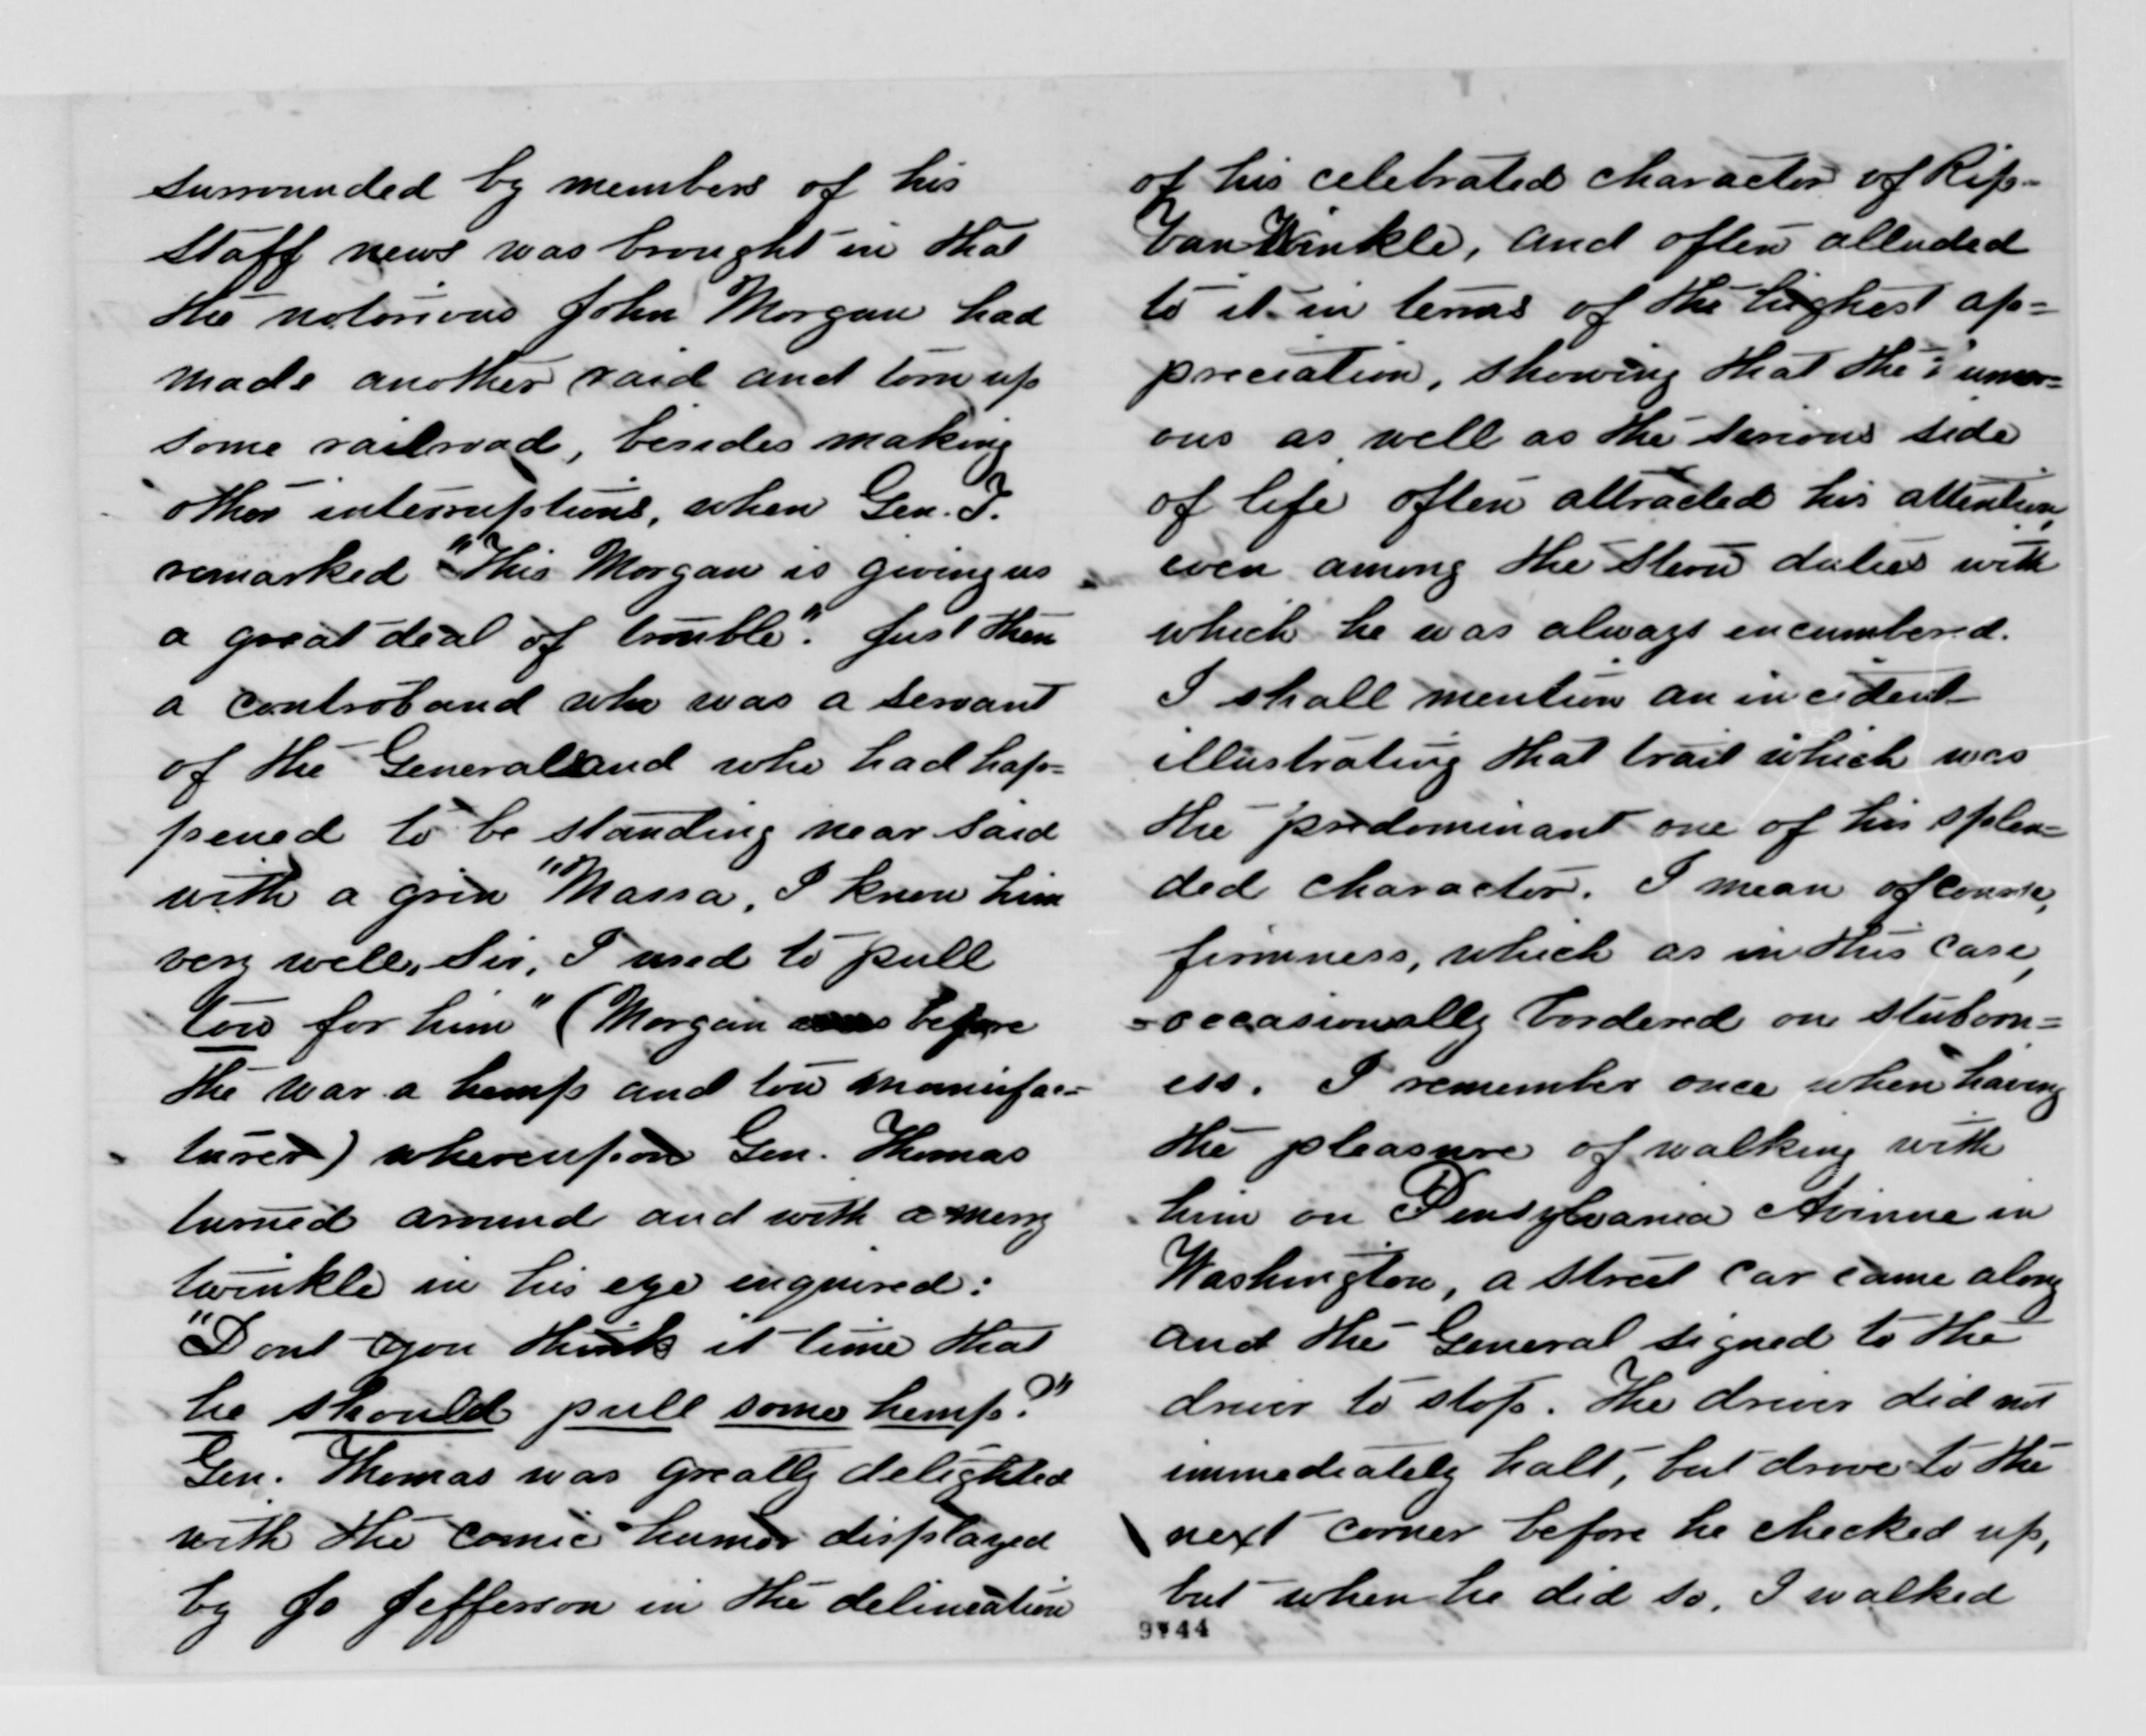 surrounded by members of his
staff news was brought in that
the notorious John Morgan had
made another raid and torn up
some railroad, besides making
other interruptions, when Gen. T.
remarked "This Morgan is giving us
a great deal of trouble". Just then
a contraband who was a servant
of the General and who had hap=
pened to be standing near said
with a grin "Massa, I know him
very well, Sir, I used to pull
tow for him" (Morgan was before
the war a hemp and tow manufac=
turer) whereupon Gen. Thomas
turned around and with a merry
twinkle in his eye enquired:
"Dont you think it time that
he should pull some hemp?"
Gen. Thomas was greatly delighted
with the comic humor displayed
by Jo Jefferson in the delineation
of his celebrated character of Rip=
Van Winkle, and often alluded
to it in terms of the highest ap=
preciation, showing that the
ous as well as the serious side
of life often attracted his attention,
even among the stern duties with
which he was always encumbered.
I shall mention an incident
illustrating that trait which was
the predominant one of his splen=
ded character. I mean of course,
firmness, which as in this case,
occasionally bordered on stuborn=
ess. I remember once when having
the pleasure of walking with
him on Pensylvania Avinue in
Washington, a street car came along
and the General signed to the
driver to stop. The driver did not
immediately halt, but drove to the
next corner before he checked up,
but when he did so, I walked